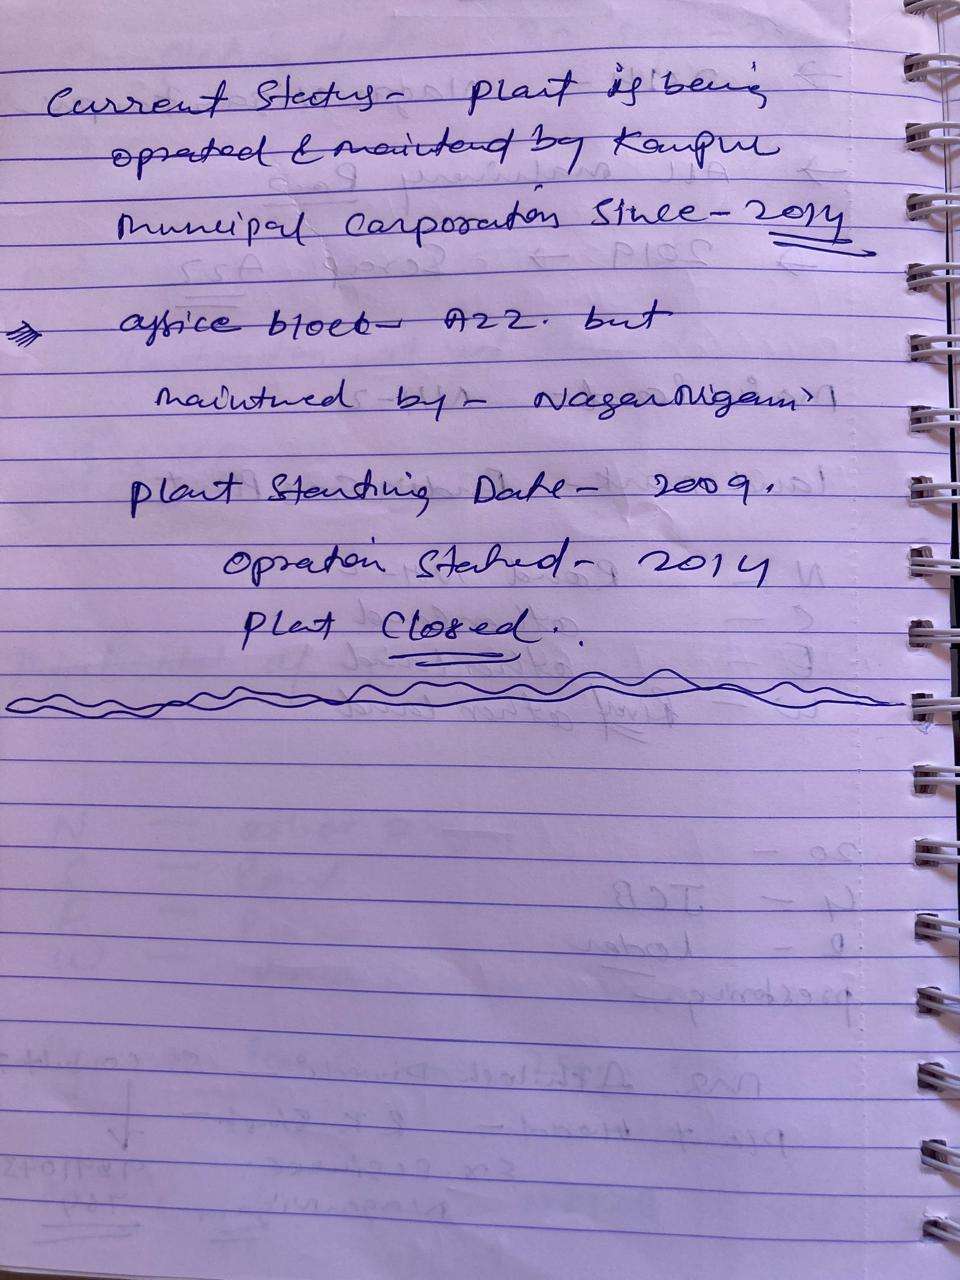 Current Status - plant is being
oprated & maintend by Kanpur
Municipal Corporation Since - 2014
office block - A2Z. but
maintened by - Nagar Nigam
plant Starting Date - 2009.
Opration Started - 2014
plant Closed.